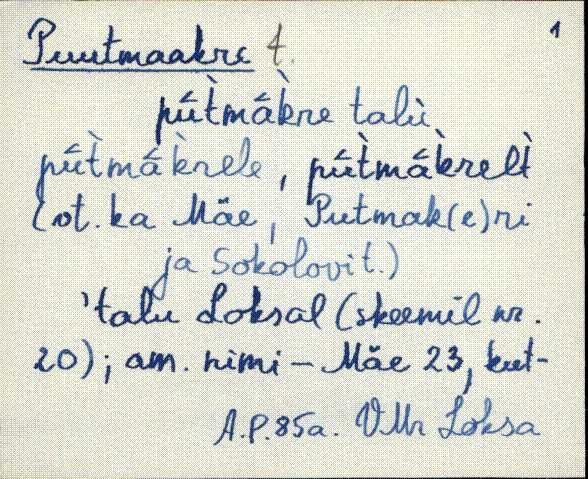 Puutmaakre t. 1
pū́t̀mā́k̀re talù,
pū́t̀mā́k̀rele, pū́t̀mā́k̀relt̀
(vt. ka Mäe, Putmak(e)ri
ja Sokolovit.)
'talu Loksal (skeemil nr.
20); am. nimi – Mäe 23, kut-
A.P.85a. VMr Loksa